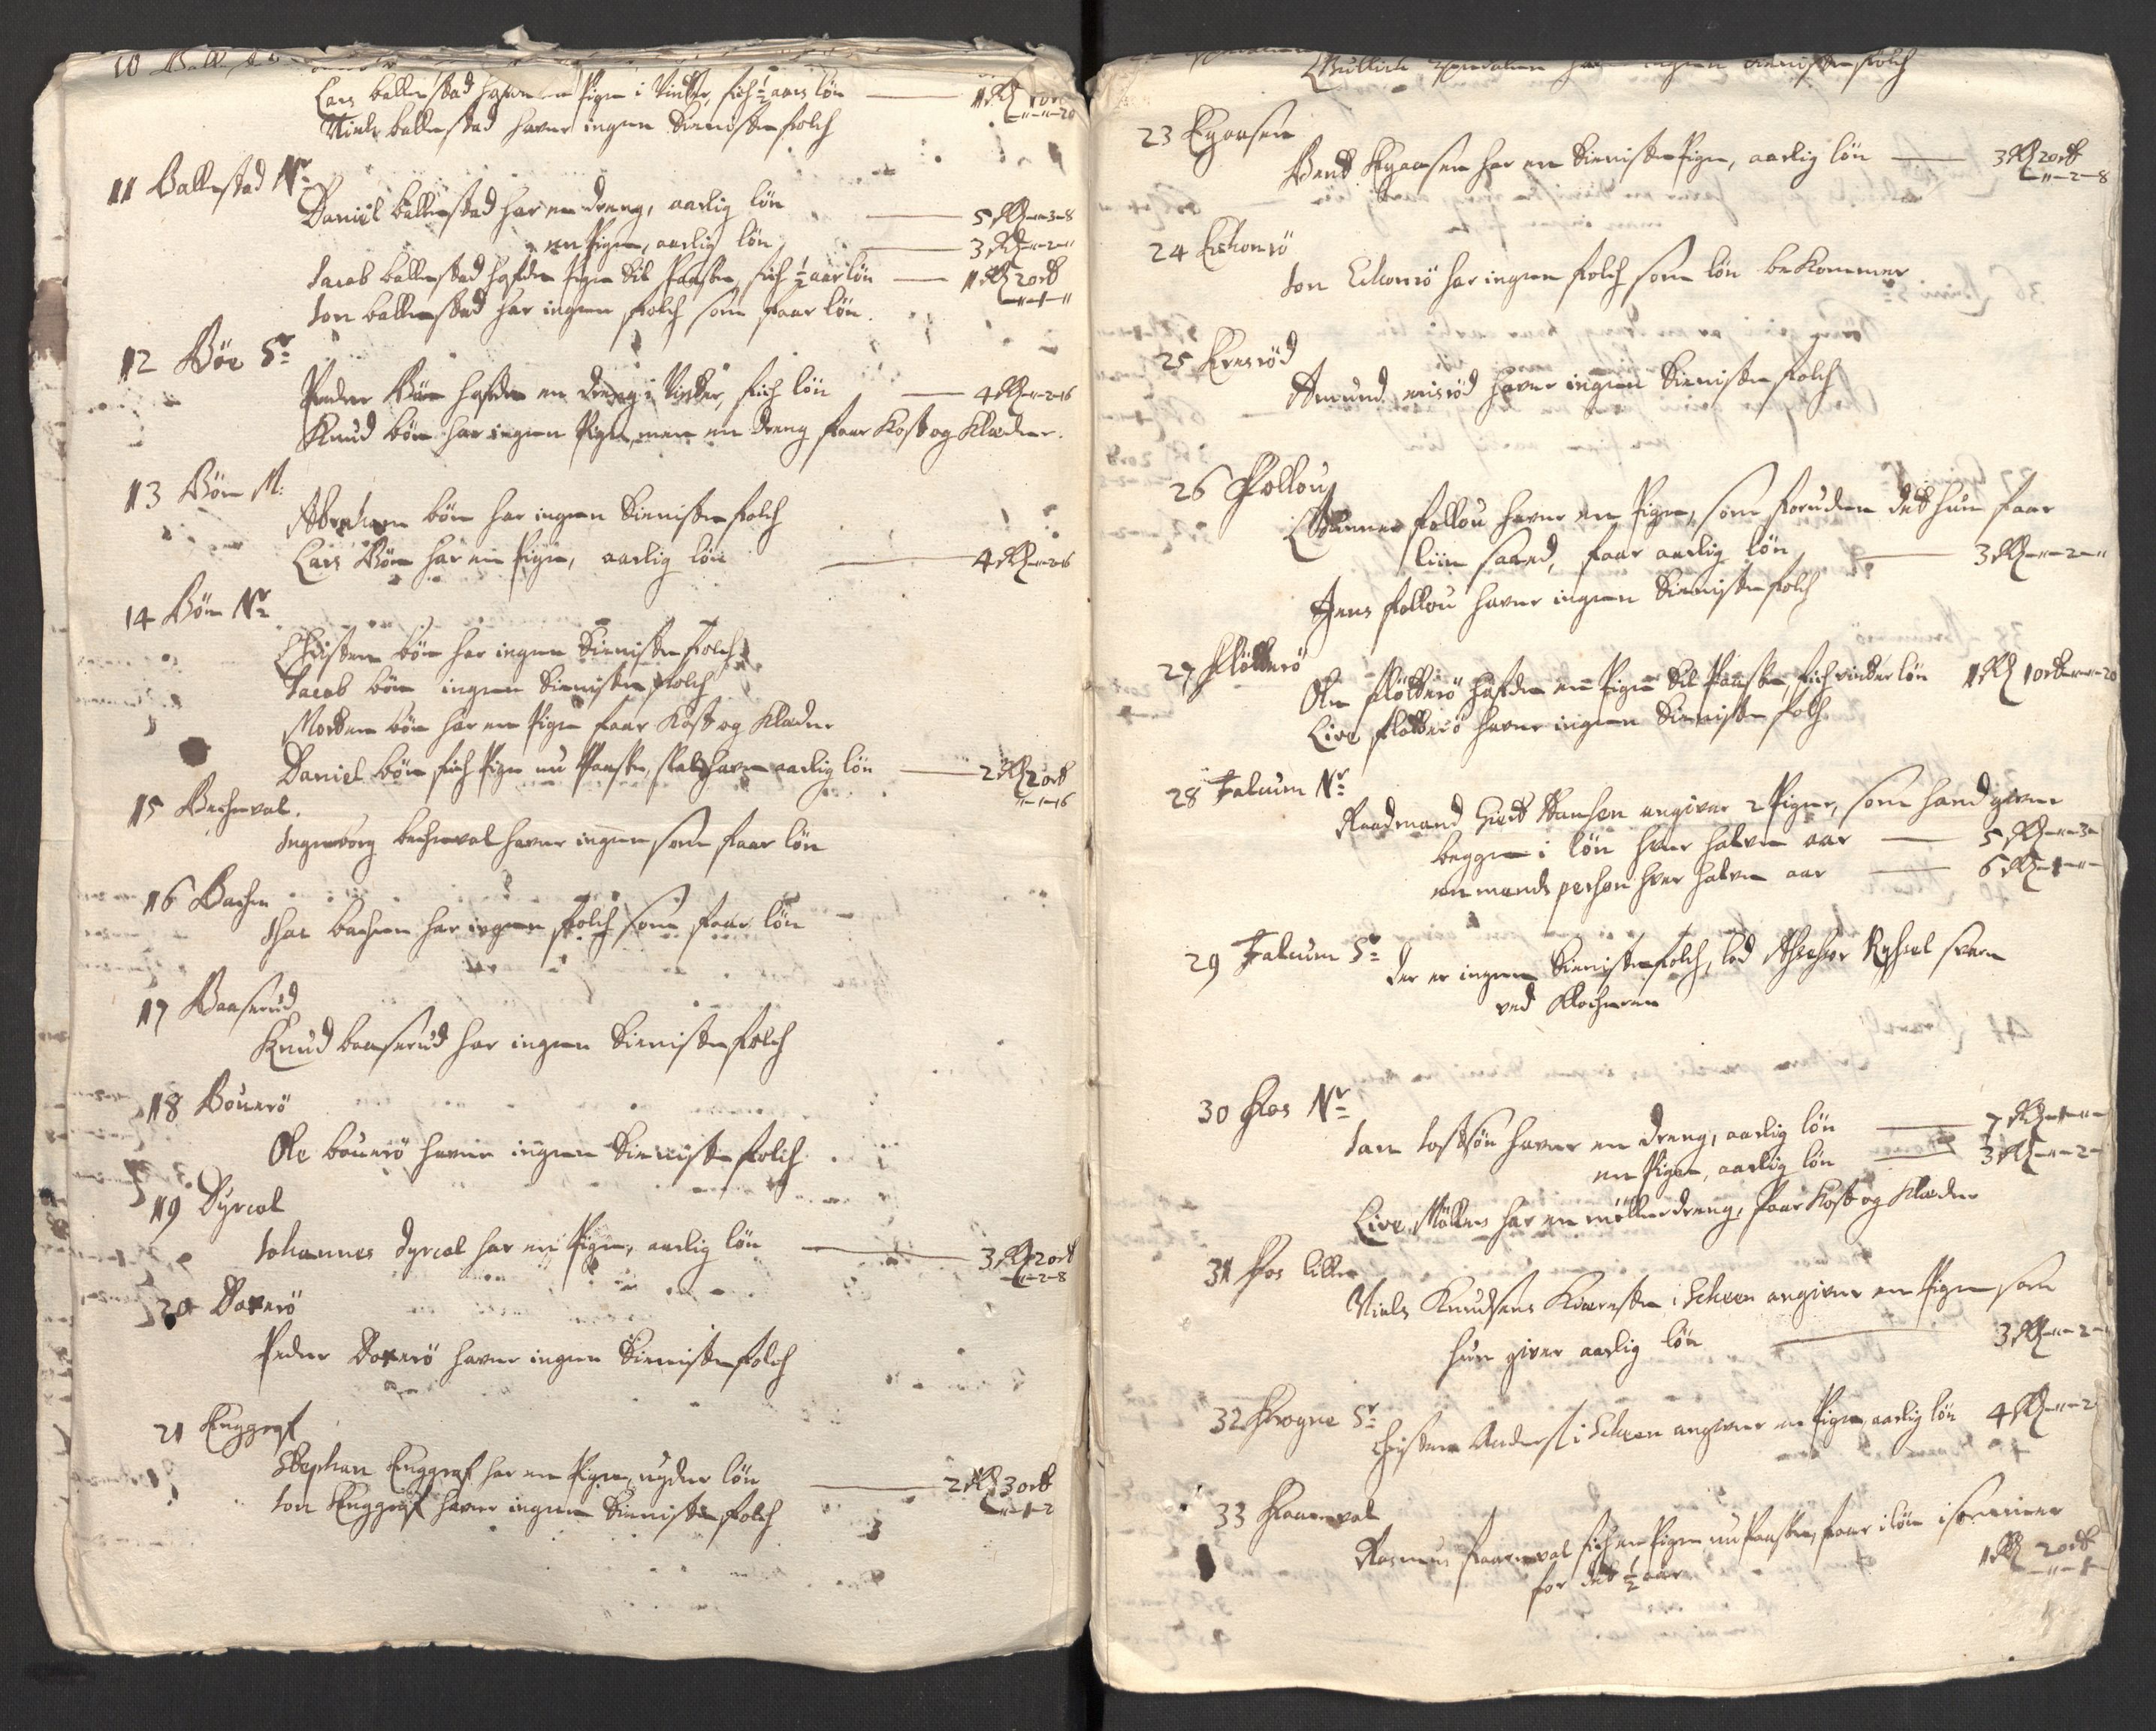 10 Ball
Lars ballestad hafver en Pige i Vinter, fich ½ aars løn — 1 Rdr 1 ort
— " — " — 20
Niels ballestad haver ingen tienistefolch
11 Ballestad Nr
Daniel ballestad har en dreng, aarlig løn — 5 Rdr — " — 3 — 8
en Pige, aarlig løn — 3 Rdr — " — 2 — "
Jacob ballestad hafde Pige til Paaske, fich ½ aar løn — 1 Rdr 2 ort
— " — 1 — "
Jon ballestad har ingen folch som faar løn.
12 Böe Sr
Peder Böe hafde en dreng i Vinter, fich løn — 4 Rdr — " — 2 — 16
Knud böe har ingen Pige, men en dreng faar Kost og Klæder.
13 Böe M:
Abraham böe har ingen tienistefolch
Lars Böe har en Pige, aarlig løn — 4 Rdr — " — 2 — 16
14 Böe Nr
Christen böe har ingen tienistefolch
Jacob böe ingen tienistefolch
Morten böe har en Pige faar Kost og Klæder
Daniel böe fich Pige nu Paaske, skal have aarlig løn — 2 Rdr 2 ort
" — 1 — 16
15 Bechevol.
Ingeborg bechevol haver ingen som faar løn
16 Bachen
Isac bachen har ingen folch som faar løn
17 Baaserud
Knud baaserud har ingen tienistefolch
18 Bouerö
Ole bouerö haver ingen tienistefolch
19 Dyrcol
Johannes dyrcol har en Pige, aarlig løn — 3 Rdr 2 ort
— " — 2 — 8
20 Doxerö
Peder Doxerö haver ingen tienistefolch
21 Enggraf
Stephan Enggraf har en Pige, nyder løn — 2 Rdr 3 ort
— " — 1 — 2
Jon Enggraf haver ingen tienistefolch
ingen tienistefolch
23 Egaasen
Bent Egaasen har en tieniste Pige, aarlig løn — 3 Rdr 2 ort
— " — 2 — 8
24 Eichonrö
Jon Eichonrö har ingen folch som løn bekommer
25 Eresröd
Amund erisröd haver ingen tienistefolch
26 Follou
Gunner follou haver en Pige, som foruden det hun faar
liin saaed, faar aarlig løn — 3 Rdr — " — 2 — "
Jens follou haver ingen tienistefolch
27 Flötterö
Ole flötterö hafde en Pige til Paaske, fich vinter løn 1 Rdr 1 ort — " — " — 20
Live flötterö haver ingen tienistefolch
28 Falcum Nr
Raadmand Giert Hansen angiver 2 Piger, som hand giver
begge i løn hver halve aar — 5 Rdr — " — 3 —
en mands pershon hver halve aar — 6 Rdr — 1 — " —
29 Falcum Sr
der er ingen tienistefolch, lod Assessor Ryssel svare
ved Klocheren
30 Fos Nr
Jan Jostsön haver en dreng, aarlig løn — 7 Rdr — 1 — " —
en Pige, aarlig løn — 3 Rdr — " — 2 —
Live Möllers har en möllerdreng, faar Kost og Klæder
31 Fos lille
Niels Knudsens Kiæreste i Scheen angiver en Pige som
hun giver aarlig løn — 3 Rdr — " — 2 —
32 Frogne Sr
Christen Anders: i Scheen angiver en Pige, aarlig løn 4 Rdr — " — 2
33 Faarevol
Rasmus faarevol fich en Pige nu Paaske, faar i løn i sommer
for det ½ aar 1 Rdr 2 ort
— " — 1 —